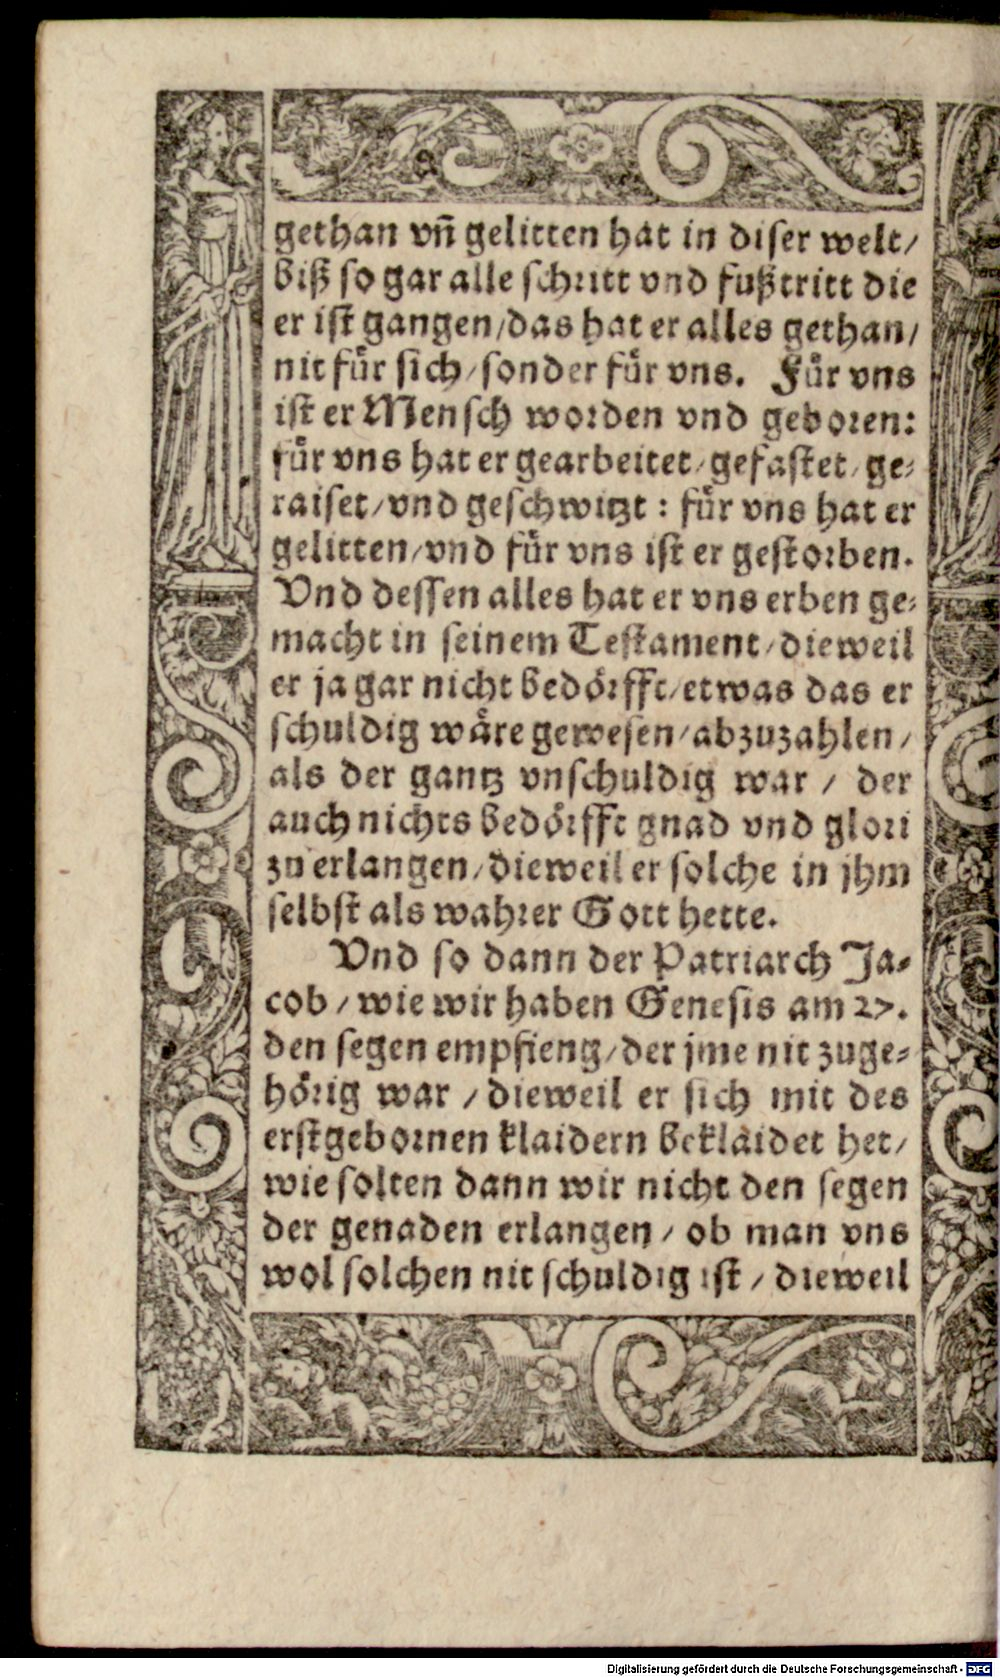 gethan vñ gelitten hat in diser welt/
biß so gar alle schritt vnd fußtritt die
er ist gangen/das hat er alles gethan/
nit für sich/sonder für vns. Für vns
ist er Mensch worden vnd geboren:
für vns hat er gearbeitet/gefastet/ge-
raiset/vnd geschwitzt: für vns hat er
gelitten/vnd für vns ist er gestorben.
Vnd dessen alles hat er vns erben ge-
macht in seinem Testament/dieweil
er ja gar nicht bedörfft/etwas das er
schuldig wäre gewesen/abzuzahlen/
als der gantz vnschuldig war / der
auch nichts bedörfft gnad vnd glori
zu erlangen/dieweil er solche in jhm
selbst als wahrer Gott hette.
Vnd so dann der Patriarch Ja-
cob/wie wir haben Genesis am 27.
den segen empfieng/der jme nit zuge-
hörig war / dieweil er sich mit des
erstgebornen klaidern beklaidet het/
wie solten dann wir nicht den segen
der genaden erlangen/ ob man vns
wol solchen nit schuldig ist / dieweil
Digitalisierung gefördert durch die Deutsche Forschungsgemeinschaft - DFG